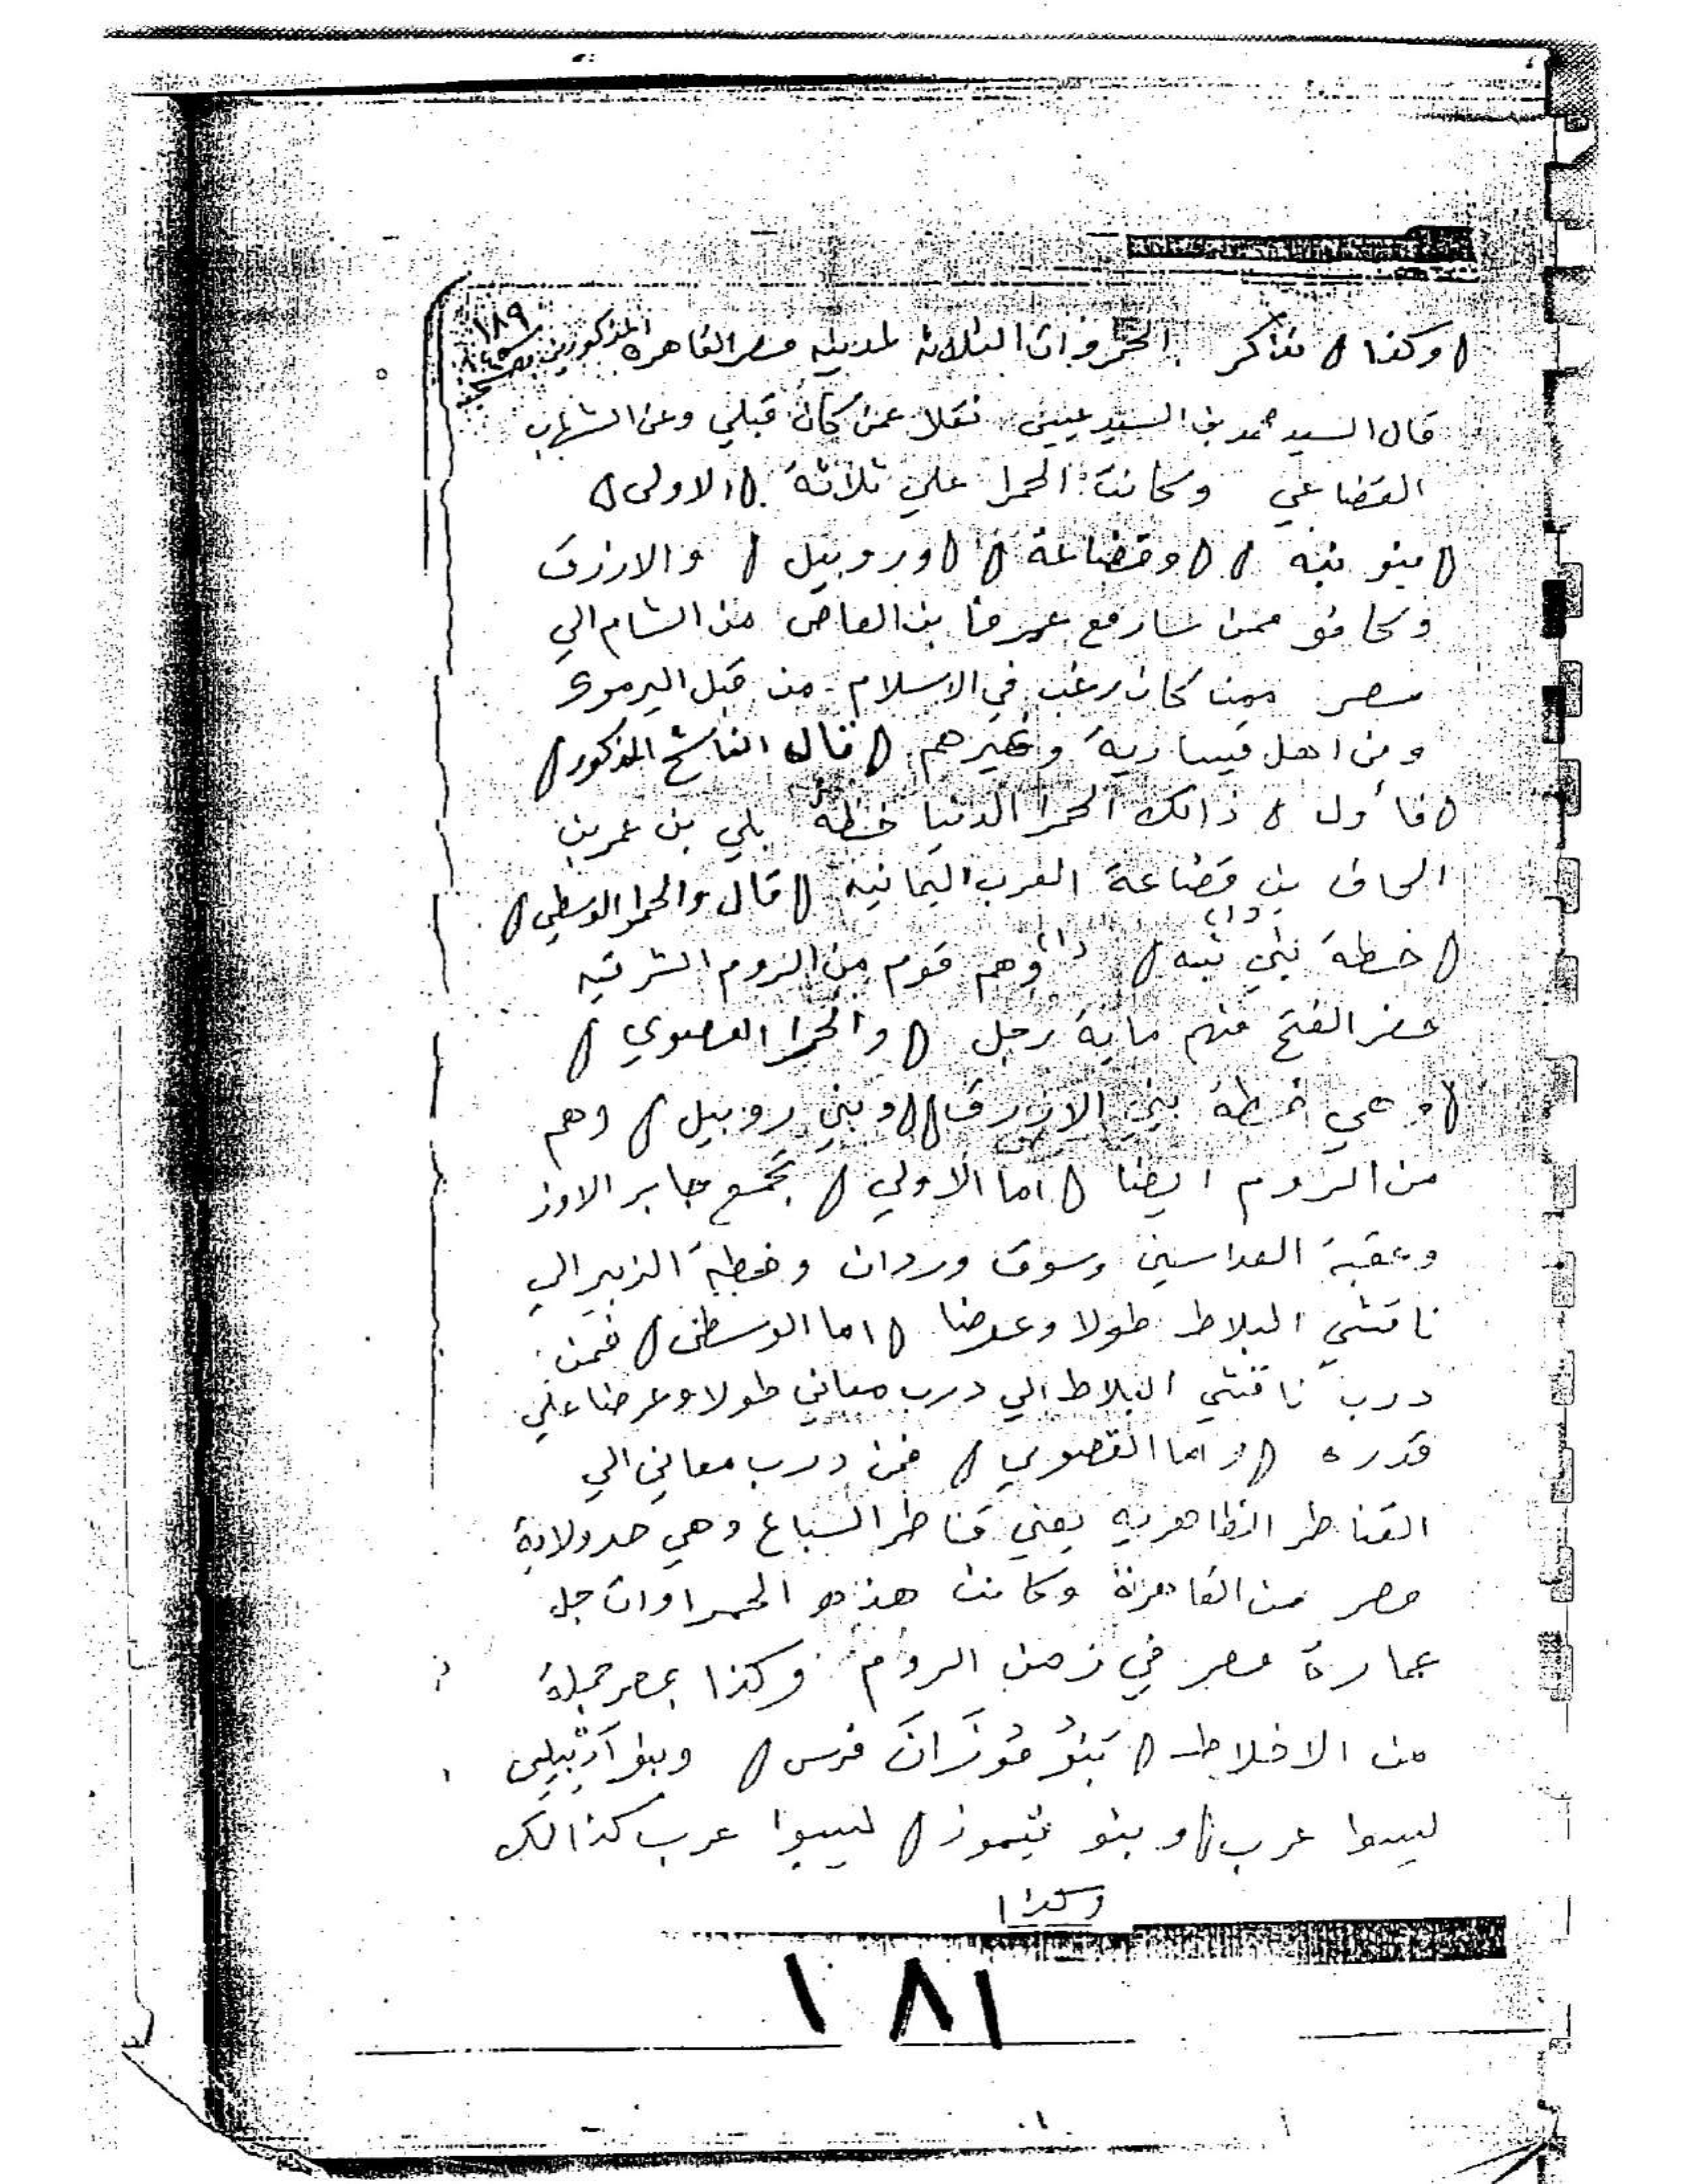 ١٨٩
(وكذا) نذاكر الحمروات الثلاثة لمدينه مصر القاهره المذكورين
قال السيد محمد بن السيد عيسى نقلا عمن كان قبلي وعن الشهاب
القضاعي وكانت الحمرا علي ثلاثة (الاولى)
(بنو نبه) (وقضاعة) (وروبيل) والازرق
وكانو ممن سار مع عمرو بن العاص من الشام الي
مصر ممن كان رغب في الاسلام من قبل اليرموك
ومن اهل قيسارية وغيرهم (قال الناسخ المذكور)
(فأول) ذالك الحمرا الدنيا خطة بلي بن عمر بن
الحاف بن قضاعة العرب اليمانيه (قال والحمرا الوسطي)
(خطة بني نبه) وهم قوم من الروم الشرقيه
حضر الفتح منهم ماية رجل (والحمرا القصوي)
(وهي خطة بني الازرق) (وبني روبيل) وهم
من الروم ايضا (اما الاولي) بجمع جابر الاوز
وعقبة العداسين وسوق وردان وخطة الزبير الي
ناقشي البلاط طولا وعرضا (اما الوسطى) فمن
درب ناقشي البلاط الي درب معاني طولا وعرضا علي
قدره (واما القصوي) فمن درب معاني الي
القناطر الظاهريه يعني قناطر السباع وهي حد ولاية
مصر من القاهرة وكانت هذه الحمراوات جل
عمارة مصر في زمن الروم وكذا بمصر جملة
من الاخلاط (بنو فوران فرس) وبنو
ليسوا عرب (وبنو) ليسوا عرب كذالك
وكذا
١٨١